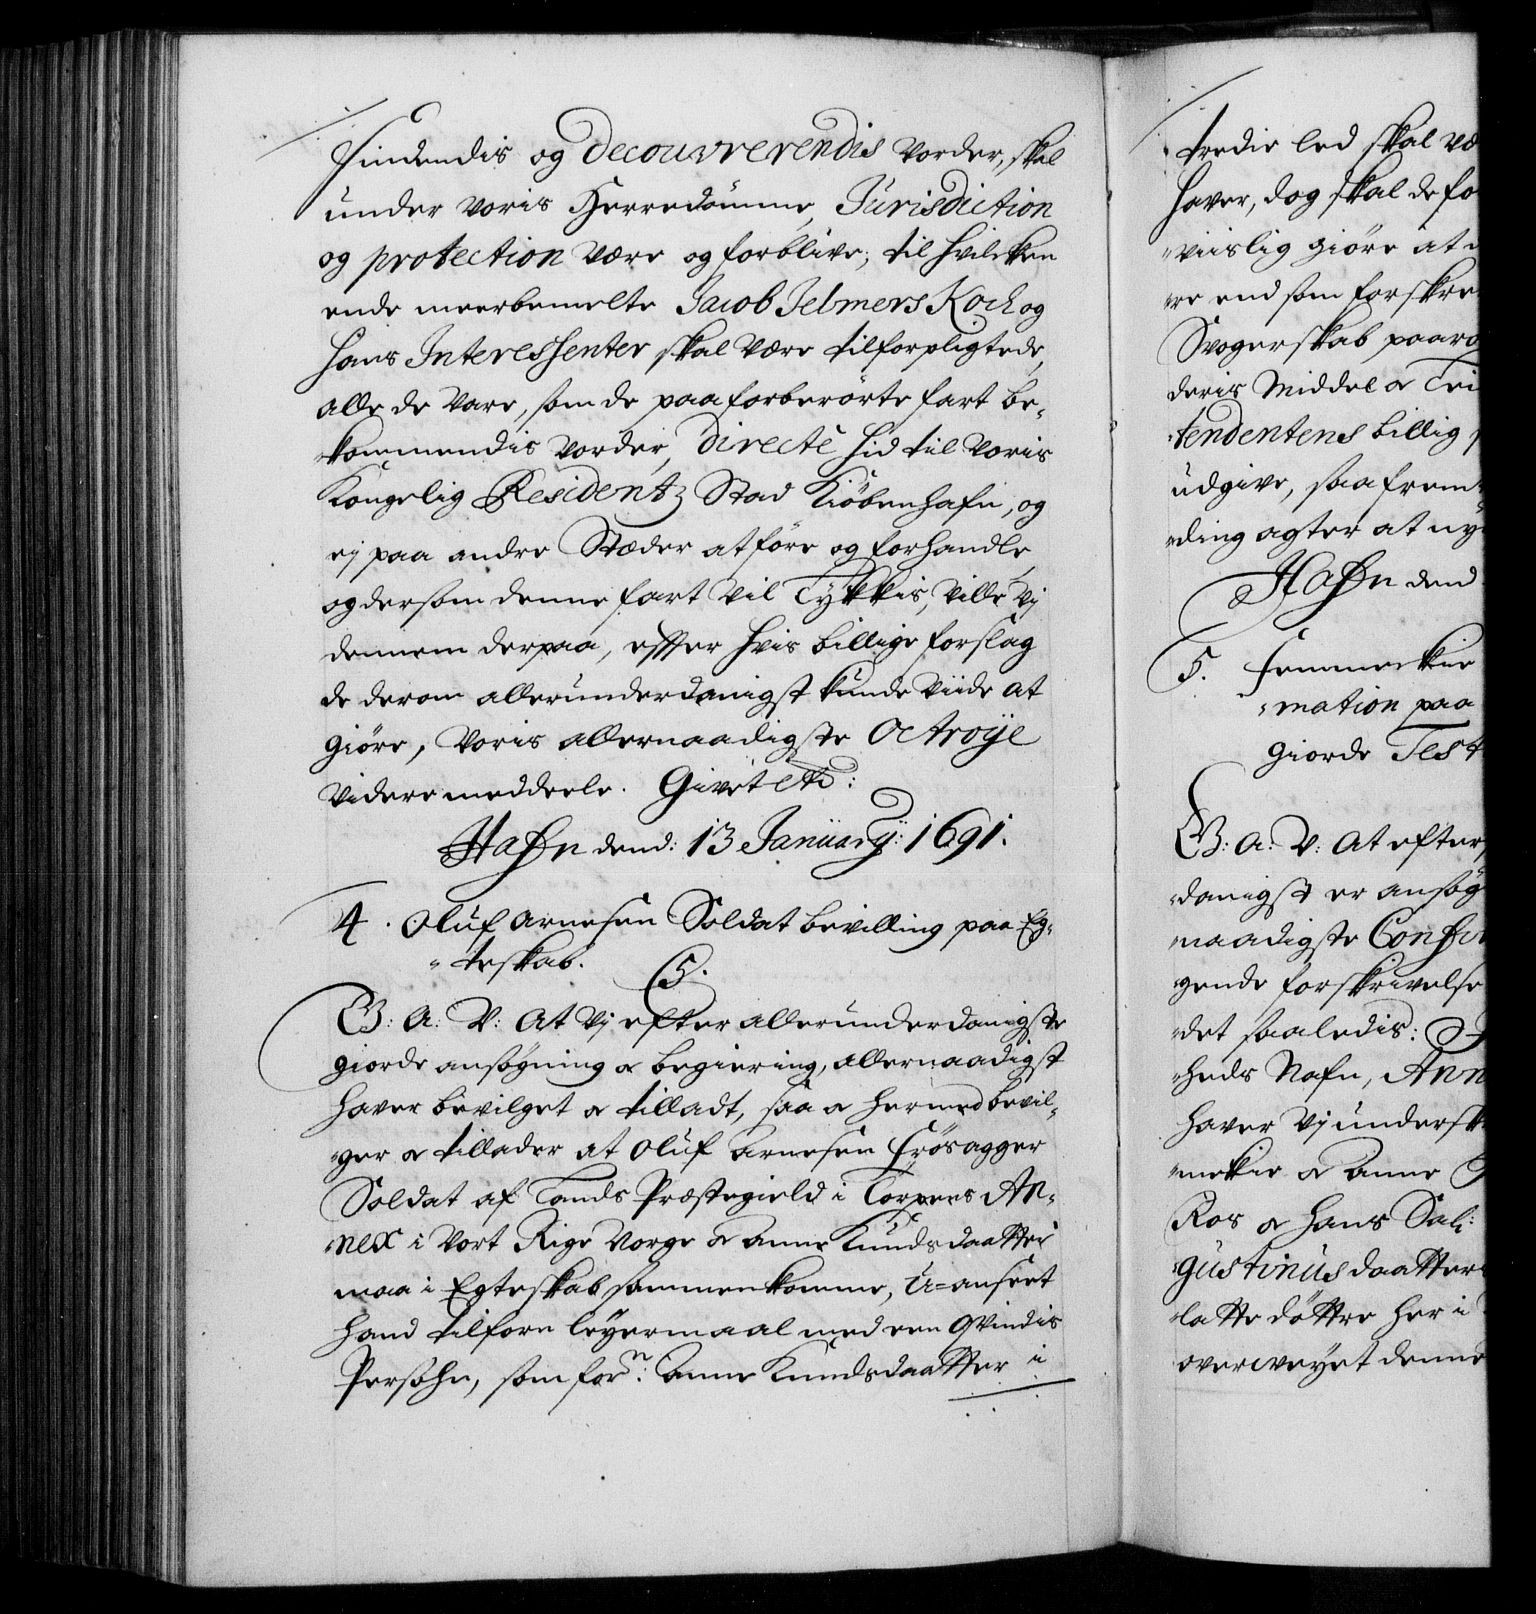 findendis og decouvrerendis vorder, skal
under voris Herredömme, Jurisdiction
og protection være og forblive; til hvilcken
ende meerbemelte Jacob Jelmers Kock og
hans Interessenter skal være tilforpligtede,
alle de vare, som de paa forberörte fart be„
kommendis vorder, directè hid til voris
Kongelig Residentz Stad Kiöbenhafn, og
ej paa andre Stæder at före og forhandle,
og dersom denne fart vil Lykkis, ville vj
dennem derpaa, effter hvis billige forslag
de derom allerunderdanigst kunde viide at
giöre, voris allernaadigste Octroÿe
videre meddeele. Givet etc:
Hafn dend: 13 Januarÿ: 1691.
4. Oluf Arnesen Soldat bevilling paa Eg„
„teskab.
C5.
G: A: V: At vj efter allerunderdanigste
giorde ansøgning & begiering, allernaadigst
haver bevilget & tilladt, saa & hermed bevil„
„ger & tillader at Oluf Arnesen Frösagger
Soldat af Lands Præstegield i Torpens An„
„nex i vort Rige Norge & Anne Knudsdaatter
maa i Egteskab sammenkomme, U=anseet
hand tilforn leyermaal med een Qvindis
Persohn, som forn: Anne Knudsdaatter i
tredie led skal væ
haver, dog skal de fo
„viislig giöre at
„re end som forskre
Svogerskab paarø
deris Middel &
„tendentens billig
udgive, saafrem
„ding agter at ny
Hafn dend
5. Femmeckie
„mation paa
giorde Test
G: A: V: At efter
„danigst er ansøg
„naadigste Confir
„gende forskrivelse
„det saaledis:
„heds Nafn, Ann
haver vj undersk
„meckie & Anne
Ros & hans Sal:
„gustinus daatter
„latte döttre her i
overveyet denne